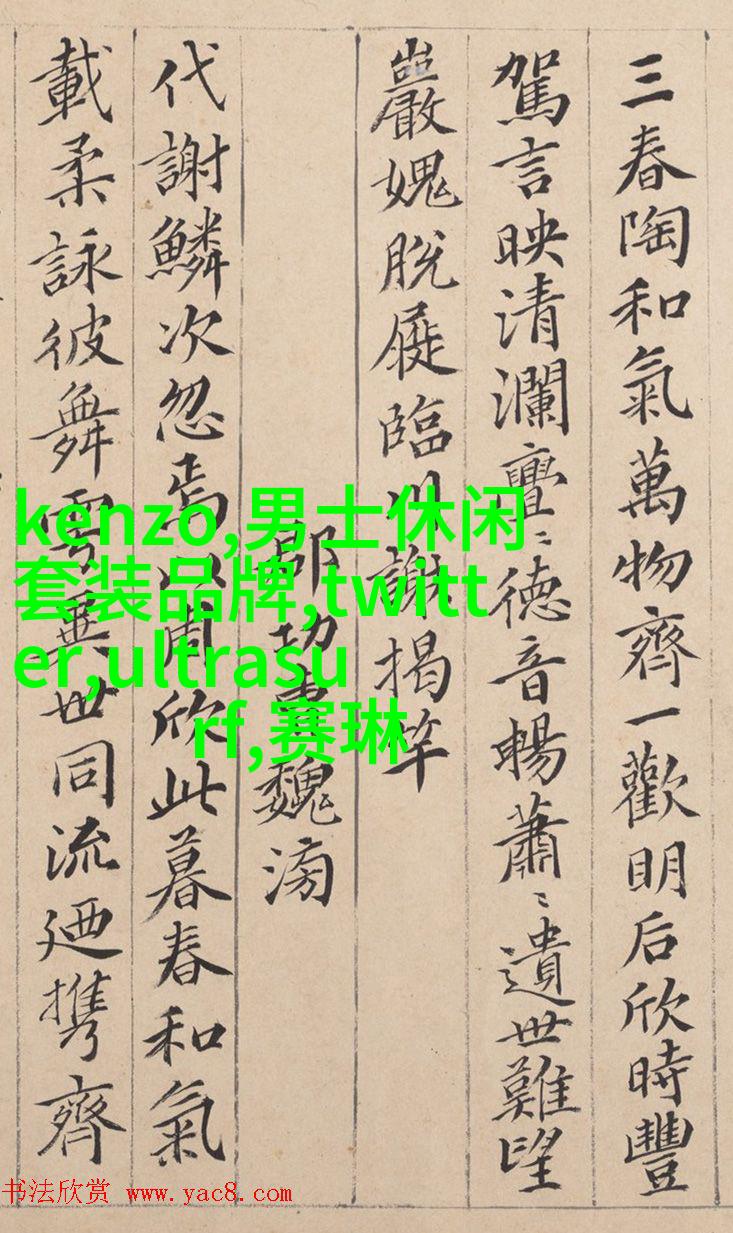 三春陶和氣萬物齊一歡明后欣時豐
駕言映清瀾亹〻德音暢蕭〻遺世難望
巖媿脫屣臨川謝揭竿
郡功曹魏滂
代謝鱗次忽焉以周欣此暮春和氣
載柔詠彼舞雩異世同流廼携齊
kenzo,男士休闲
套装品牌,twitt
er,ultrasu
rf,赛琳
书法欣赏 www.yac8.com